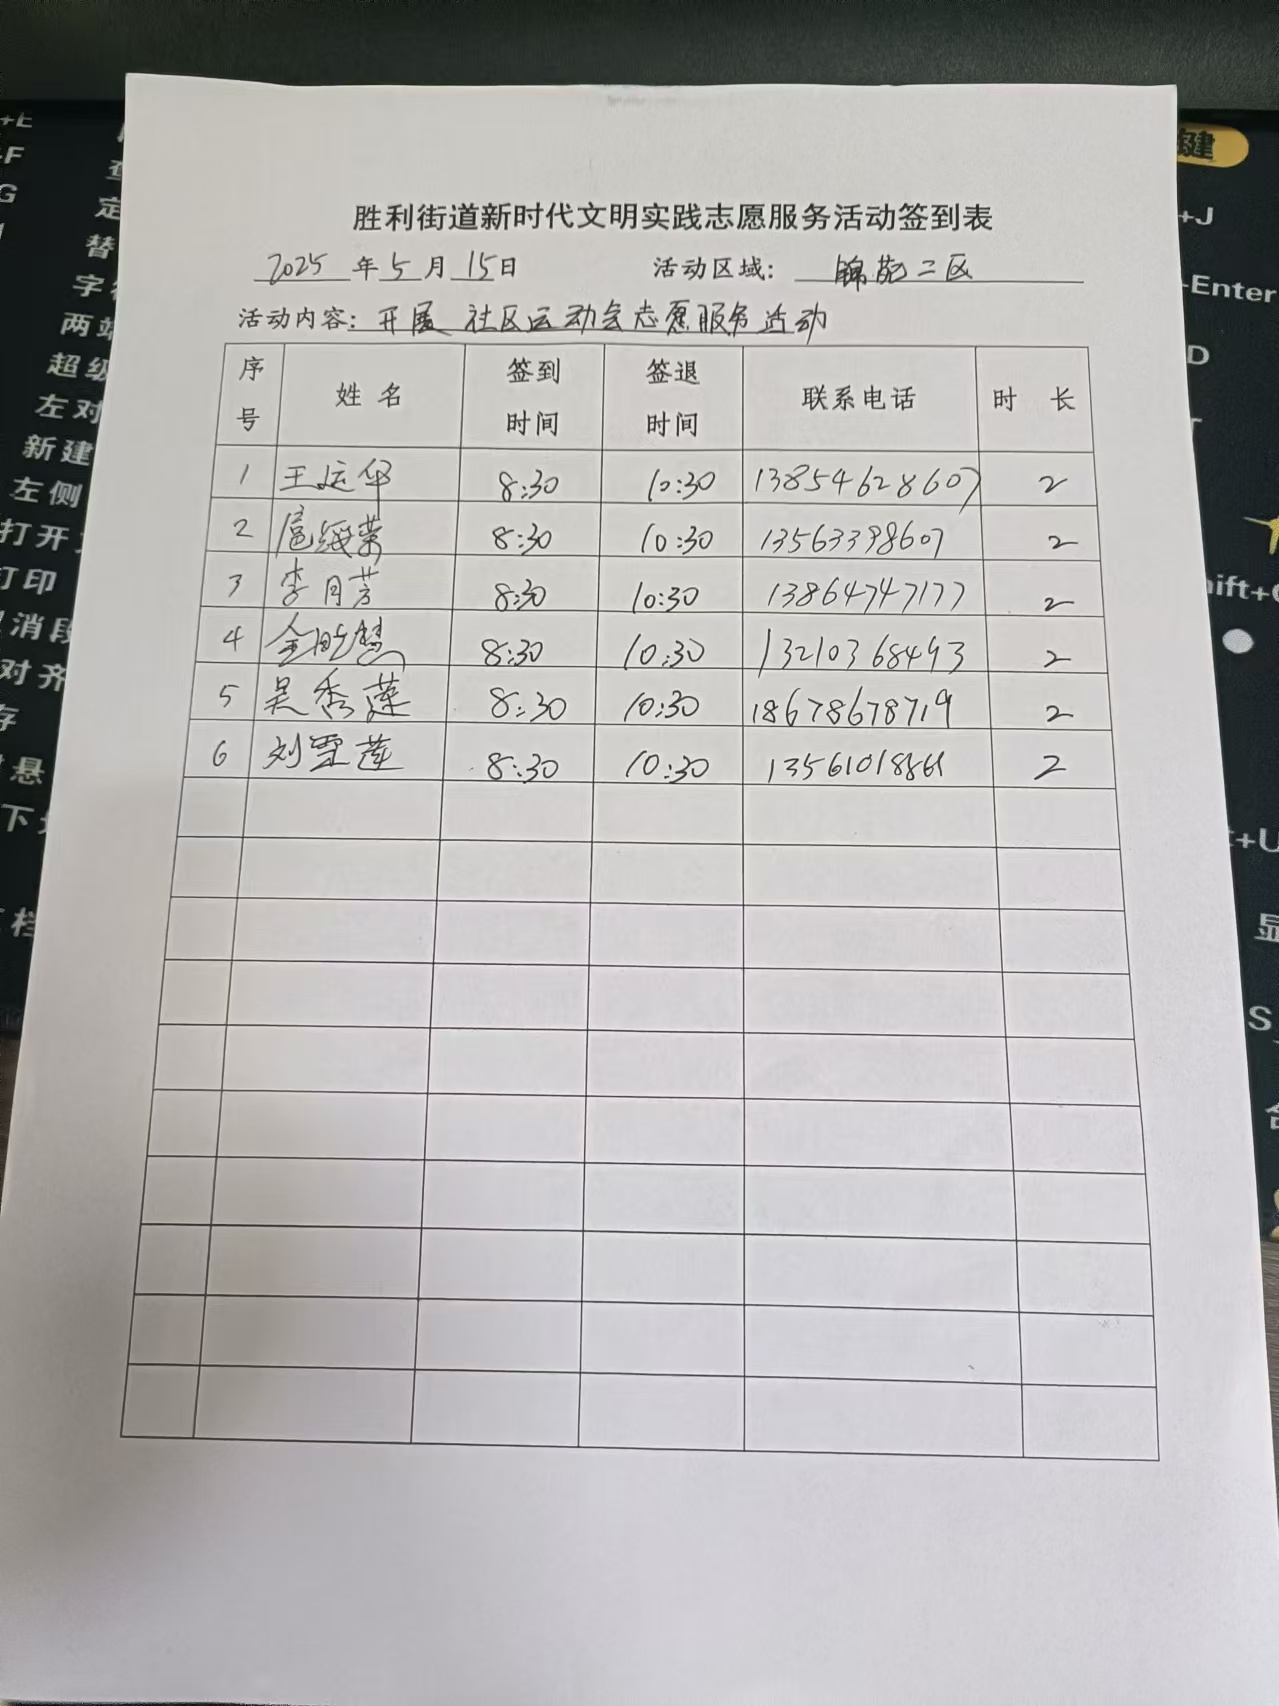 胜利街道新时代文明实践志愿服务活动签到表
2025 年 5 月 15 日 活动区域: 锦苑二区
活动内容: 开展 社区运动会志愿服务活动
序号 姓名 签到时间 签退时间 联系电话 时 长
1 王运华 8:30 10:30 13854628607 2
2 8:30 10:30 13563398607 2
3 李月芳 8:30 10:30 13864747177 2
4 8:30 10:30 13210368493 2
5 吴秀莲 8:30 10:30 18678678719 2
6 刘雪莲 8:30 10:30 2
+E
+F
G
替
定
字
两端
超级
左对
新建
左侧
打开
打印
消段
对齐
存
悬
下
栏
键
+J
Enter
D
Shift+
+U
显
S